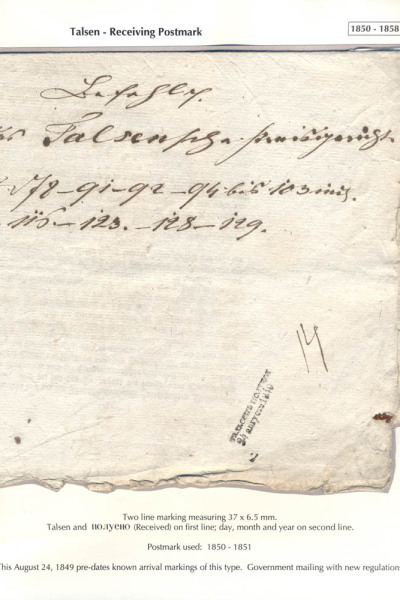 Talsen - Receiving Postmark
1850 - 1858
Befehle.
Talsensche Kreisgericht.
178-91-92-94 bis 103 incl.
115-123.-128-129.
Тальсенъ получен
24 августа 1849
Two line marking measuring 37 x 6.5 mm.
Talsen and полуено (Received) on first line; day, month and year on second line.
Postmark used: 1850 - 1851
This August 24, 1849 pre-dates known arrival markings of this type. Government mailing with new regulations